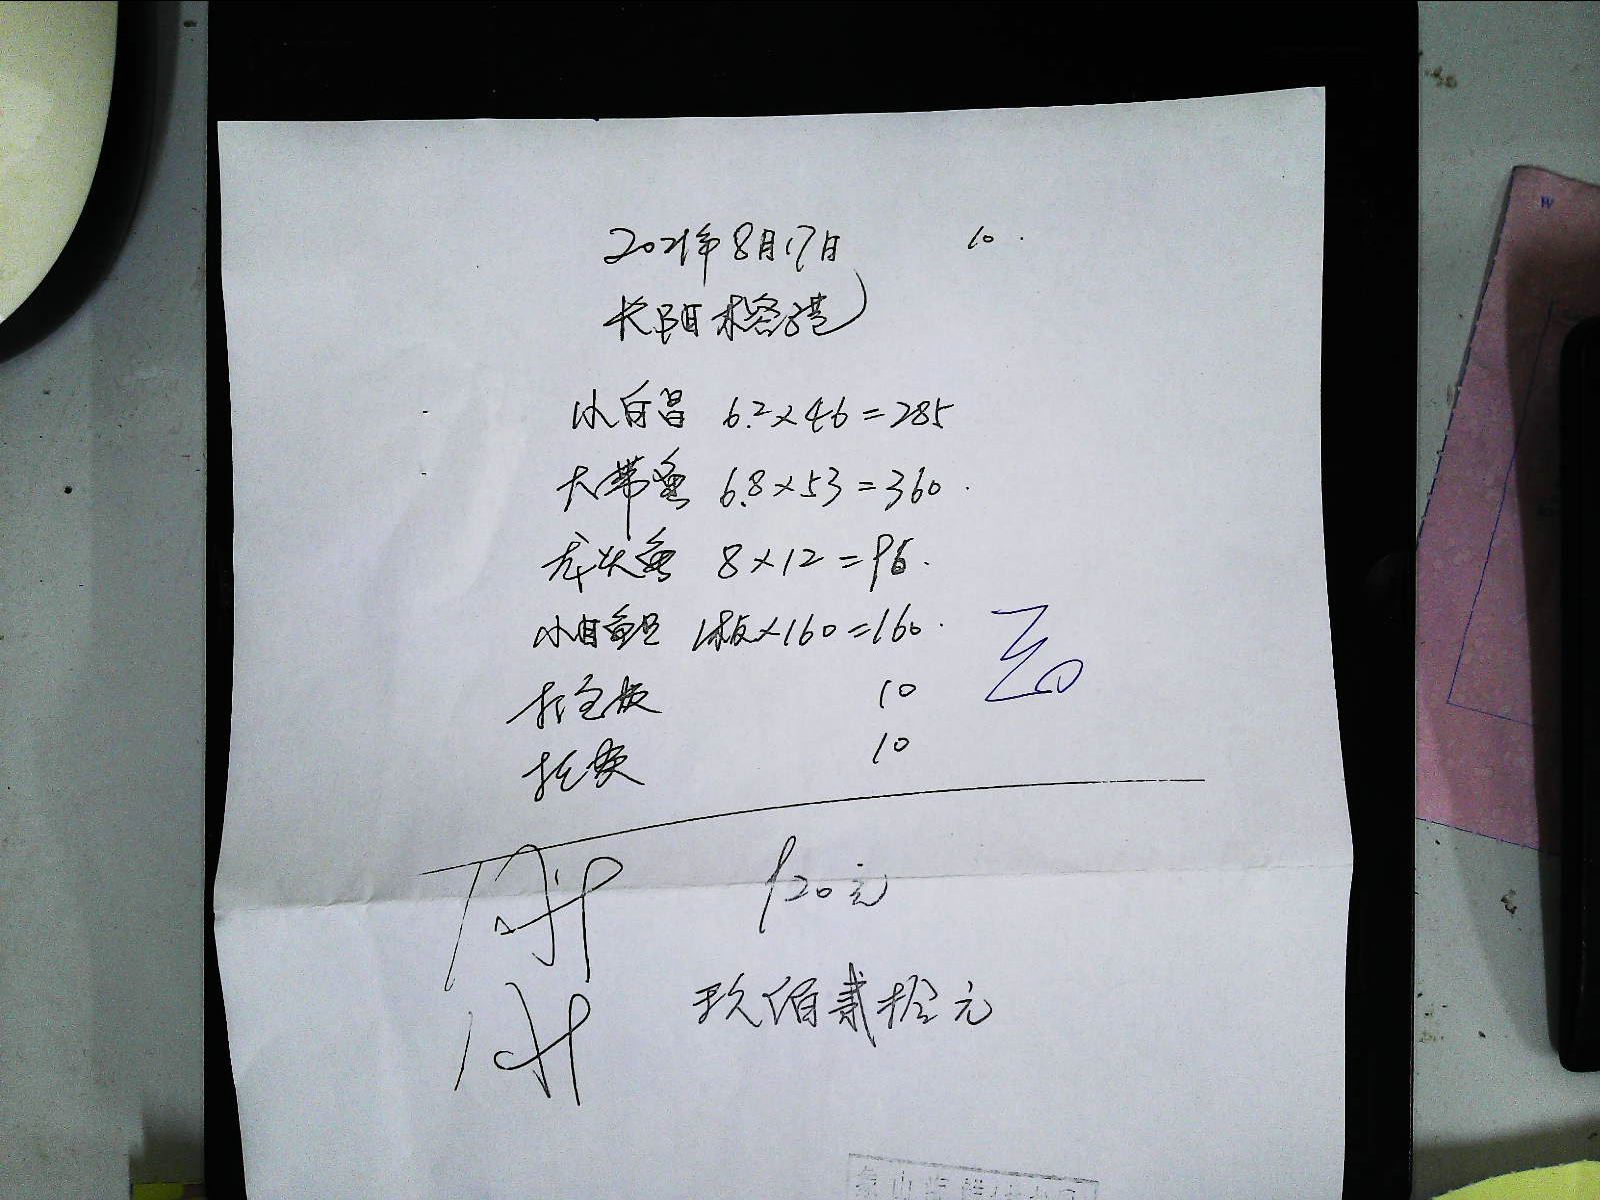 2021年8月17日 10.
长阳榕港
小白昌 6.2×46=285
大带鱼 6.8×53=360.
龙头鱼 8×12=96.
小白鲳 1板×160=160.
打包费 10
托费 10
920元
玖佰贰拾元